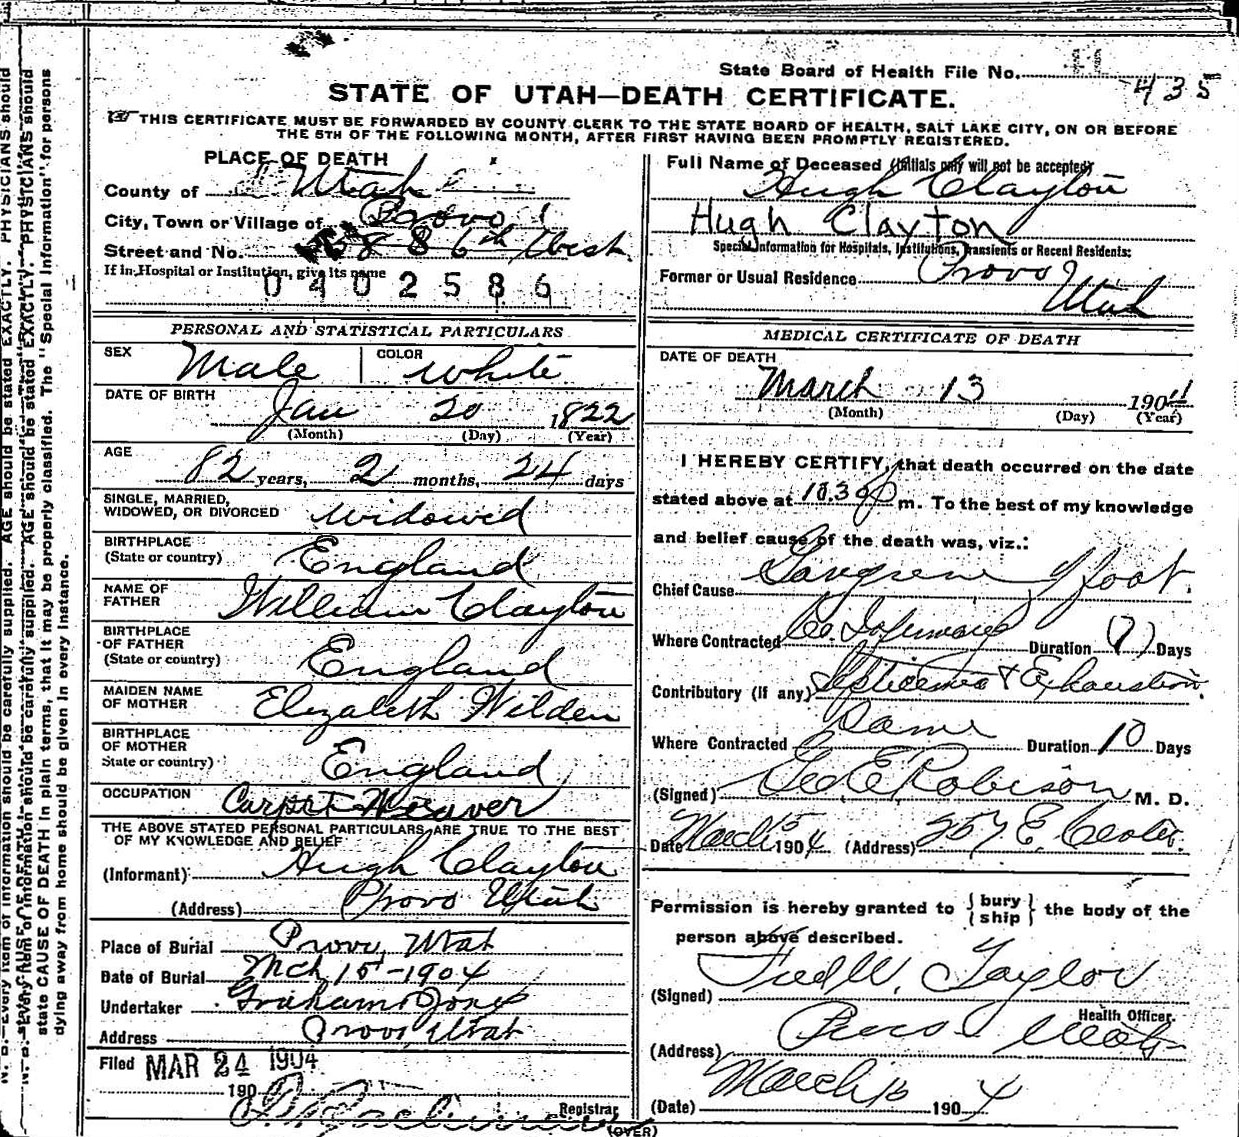 State Board of Health File No. 11
435
STATE OF UTAH—DEATH CERTIFICATE.
THIS CERTIFICATE MUST BE FORWARDED BY COUNTY CLERK TO THE STATE BOARD OF HEALTH, SALT LAKE CITY, ON OR BEFORE
THE 5TH OF THE FOLLOWING MONTH, AFTER FIRST HAVING BEEN PROMPTLY REGISTERED.
PLACE OF DEATH
County of Utah
City, Town or Village of Provo
Street and No. 588 6th West
If in Hospital or Institution, give its name
0402586
Full Name of Deceased (Initials only will not be accepted)
Hugh Clayton
Hugh Clayton
Special Information for Hospitals, Institutions, Transients or Recent Residents:
Former or Usual Residence Provo
Utah
PERSONAL AND STATISTICAL PARTICULARS
SEX Male COLOR White
DATE OF BIRTH
Jan 20 1822
(Month) (Day) (Year)
AGE
82 years, 2 months, 24 days
SINGLE, MARRIED,
WIDOWED, OR DIVORCED widowed
BIRTHPLACE
(State or country) England
NAME OF
FATHER William Clayton
BIRTHPLACE
OF FATHER
(State or country) England
MAIDEN NAME
OF MOTHER Elizabeth Wilden
BIRTHPLACE
OF MOTHER
State or country) England
OCCUPATION Carpet Weaver
THE ABOVE STATED PERSONAL PARTICULARS ARE TRUE TO THE BEST
OF MY KNOWLEDGE AND BELIEF
(Informant) Hugh Clayton
(Address) Provo Utah
Place of Burial Provo, Utah
Date of Burial Mch 15-1904
Undertaker Graham Jones
Address Provo, Utah
Filed MAR 24 1904
190
Registrar
(OVER)
MEDICAL CERTIFICATE OF DEATH
DATE OF DEATH
March 13 1904
(Month) (Day) (Year)
I HEREBY CERTIFY, that death occurred on the date
stated above at 10.30 P m. To the best of my knowledge
and belief cause of the death was, viz.:
Chief Cause Gangrene of foot.
Where Contracted Duration (?) Days
Contributory (if any) Septicemia & Exhaustion.
Where Contracted Same Duration 10 Days
(Signed) Geo E Robison M. D.
Date March 15 1904 (Address) 257 E. Center.
Permission is hereby granted to {bury
ship} the body of the
person above described.
(Signed) Fred W. Taylor
Health Officer.
(Address) Provo Utah
(Date) March 16 1904
N. B.—Every item of information should be carefully supplied. AGE should be stated EXACTLY. PHYSICIANS should
state CAUSE OF DEATH in plain terms, that it may be properly classified. The "Special Information" for persons
dying away from home should be given in every instance.